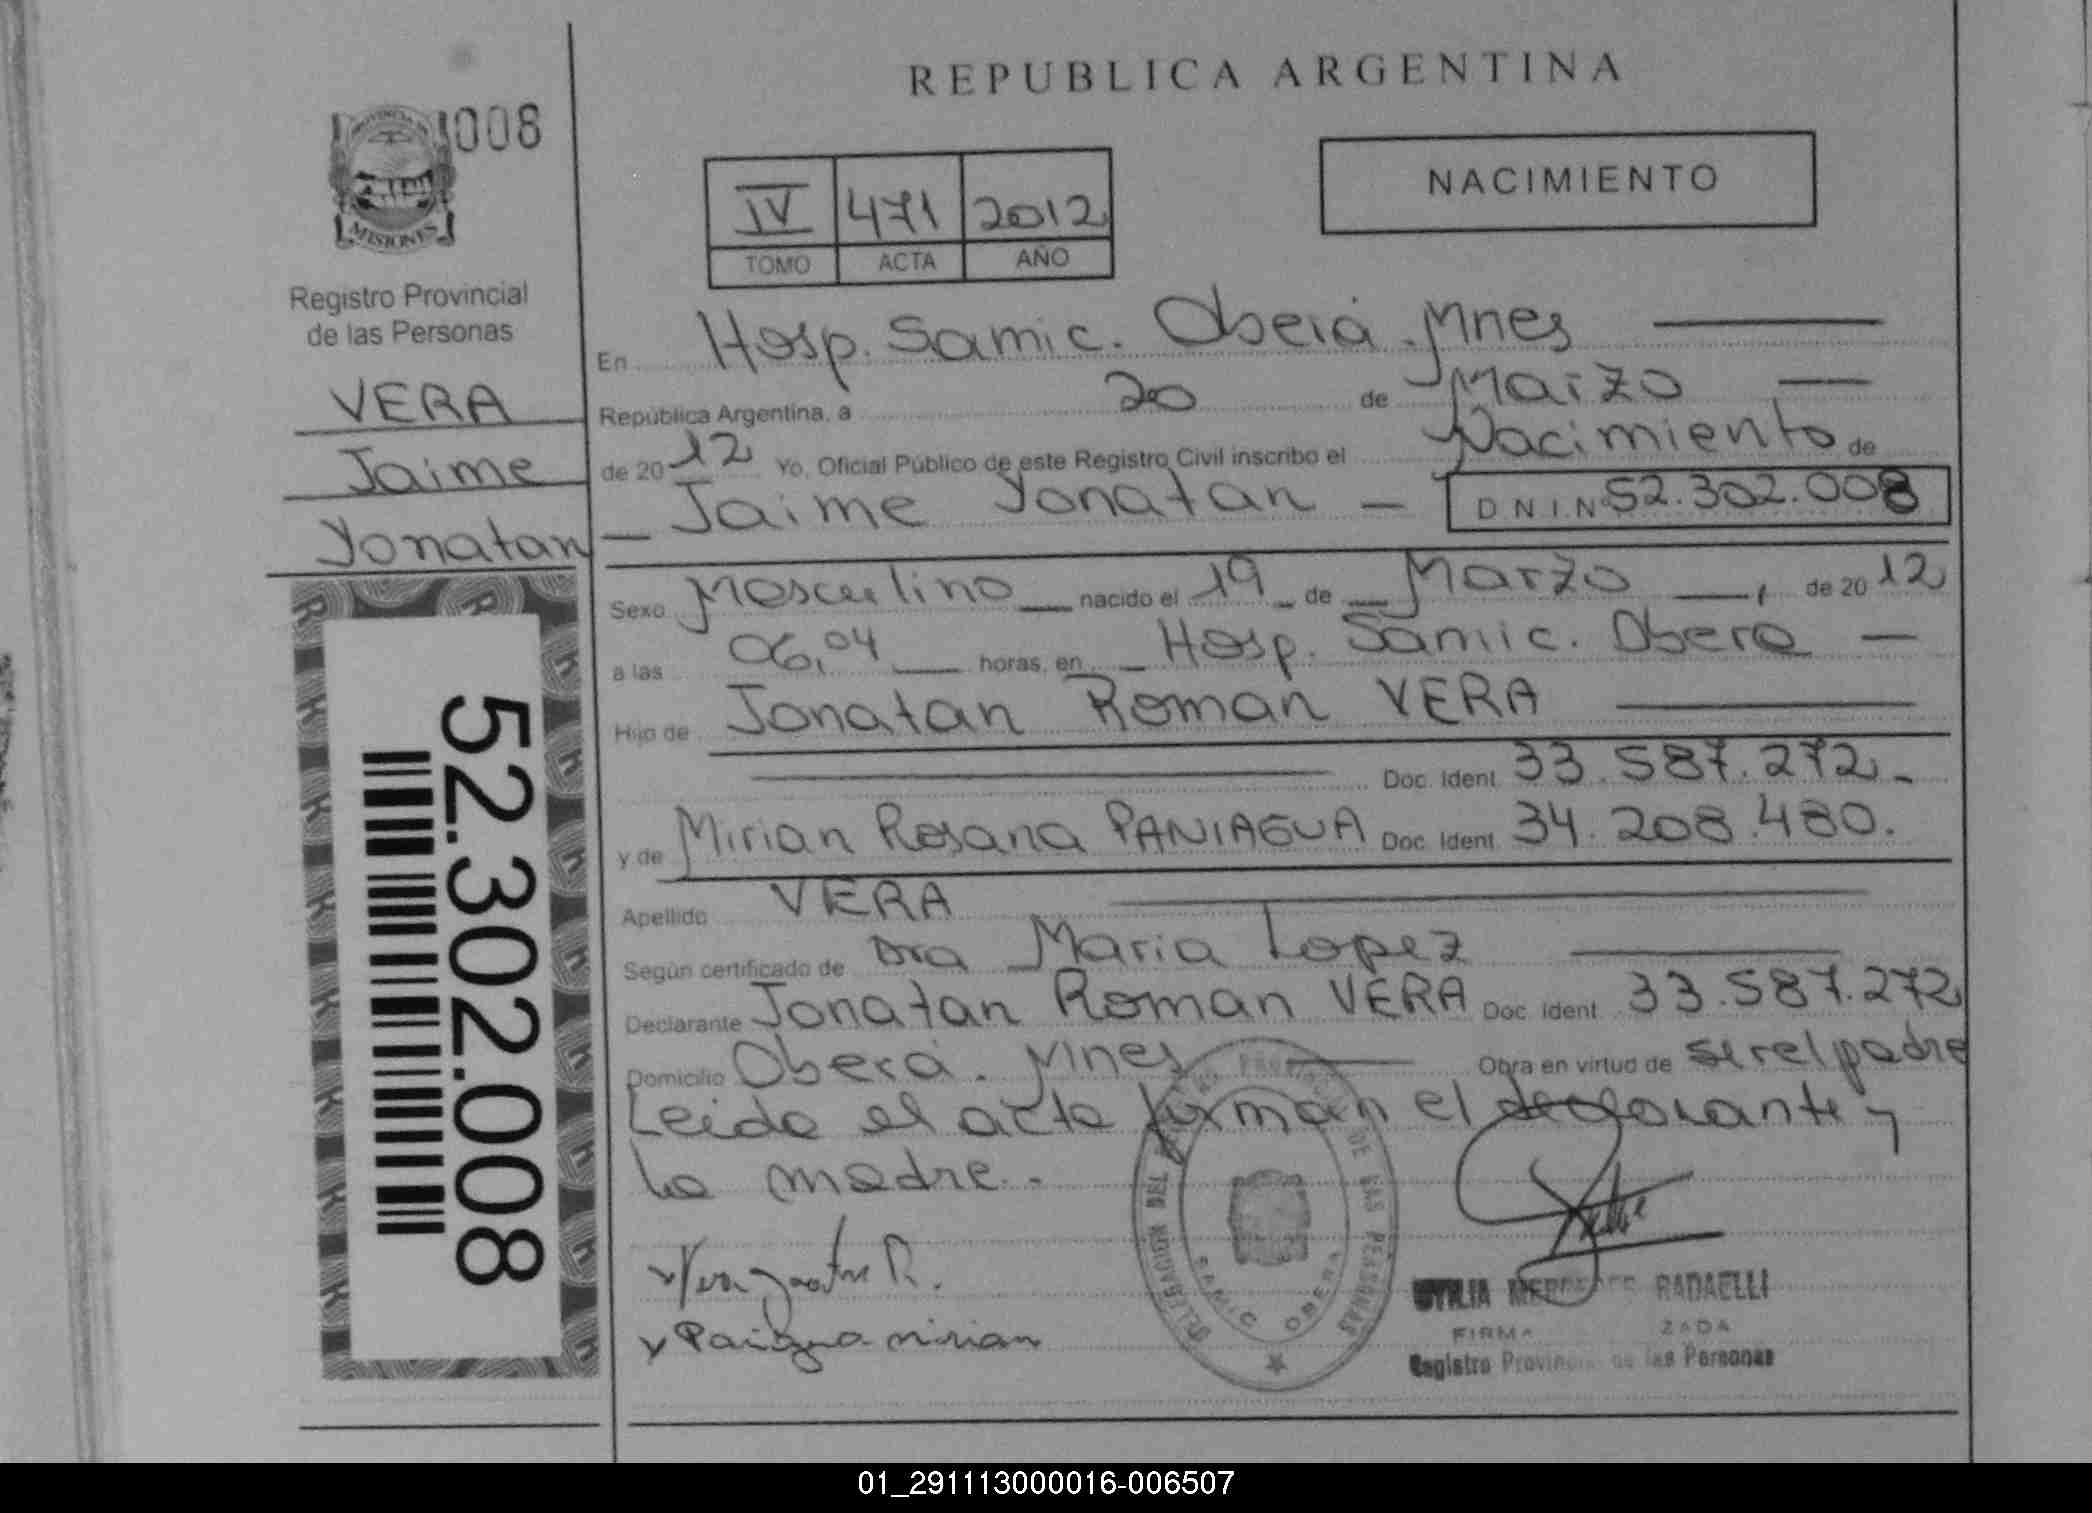 REPUBLICA ARGENTINA
008
PROVINCIA DE
MISIONES
Registro Provincial
de las Personas
VERA
Jaime
Yonatan
52.302.008
NACIMIENTO
IV 471 2012
TOMO ACTA AÑO
En Hosp. Samic. Oberá. Mnes
República Argentina, a 20 de Marzo
de 2012 Yo, Oficial Público de este Registro Civil inscribo el Nacimiento de
Jaime Yonatan D.N.I.Nº 52.302.008
Sexo Masculino nacido el 19 de Marzo, de 2012
a las 06,04 horas, en Hosp. Samic. Obera
Hijo de Jonatan Roman VERA
Doc. Ident. 33.587.272.
y de Mirian Rosana PANIAGUA Doc. Ident. 34.208.480.
Apellido VERA
Según certificado de Dra Maria Lopez
Declarante Jonatan Roman VERA Doc. Ident. 33.587.272
Domicilio Oberá. Mnes Obra en virtud de ser el padre
Leida el acta firman el declarante y
la madre.-
Vera R.
Paniagua mirian
DELEGACION DEL PROVINCIAL DE LAS PERSONAS
SAMIC OBERA
MERCEDES RADAELLI
FIRMA ZADA
Registro Provincial de las Personas
01_291113000016-006507